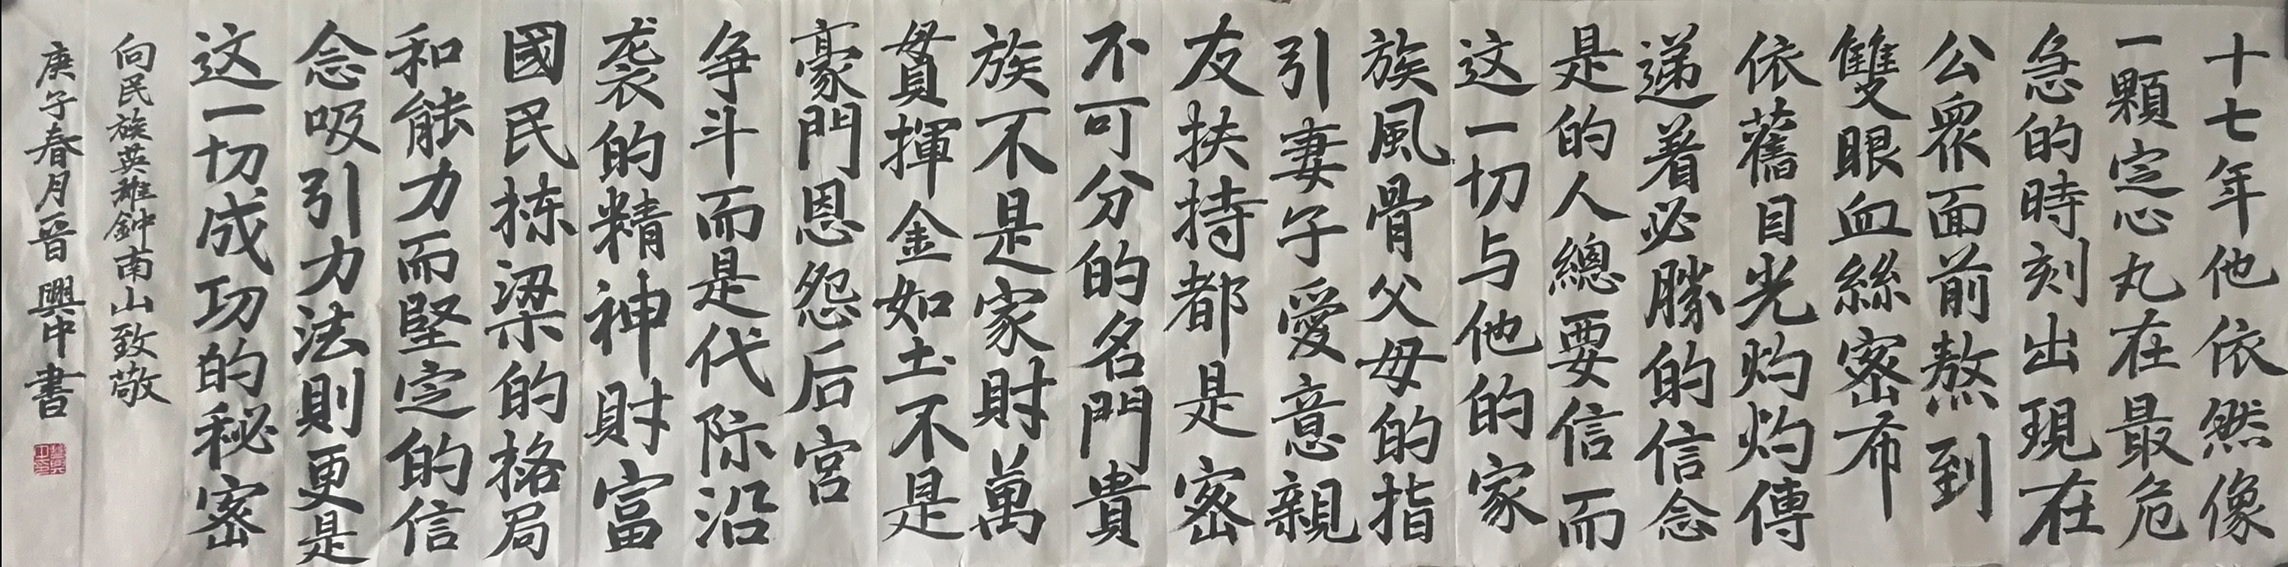 十七年他依然像
一顆定心丸在最危
急的時刻出現在
公眾面前熬到
雙眼血絲密布
依舊目光灼灼傳
递着必勝的信念
是的人總要信而
这一切与他的家
族風骨父母的指
引妻子愛意親
友扶持都是密
不可分的名門貴
族不是家財萬
貫揮金如土不是
豪門恩怨后宮
争斗而是代际沿
袭的精神財富
國民栋梁的格局
和能力而堅定的信
念吸引力法則更是
这一切成功的秘密
向民族英雄鈡南山致敬
庚子春月晉興中書